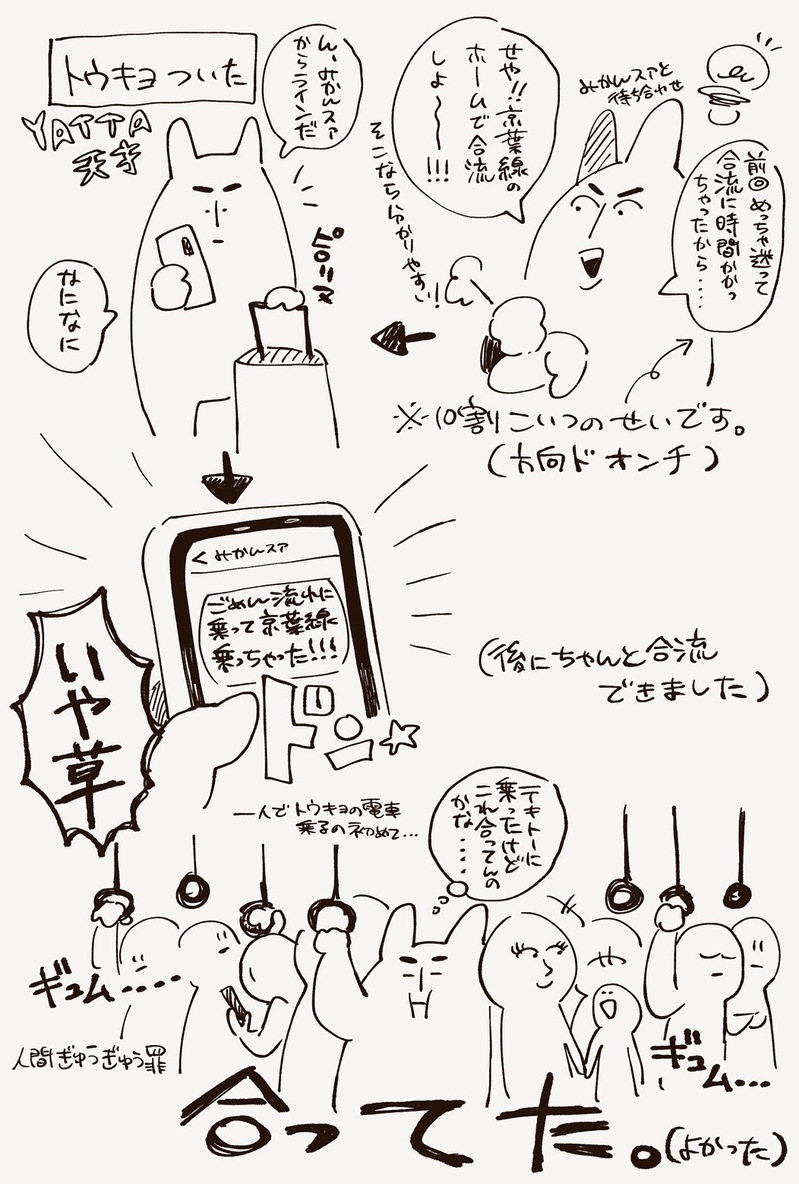 みかんスアと
待ち合わせ
前回めっちゃ迷って
合流に時間かかっ
ちゃったから....
せや!!京葉線の
ホームで合流
しよ〜〜!!!
そこなら分かりやすい!
※10割こいつのせいです。
(方向ドオンチ)
トウキョついた
YATTA
天才
ん、みかんスア
からラインだ
ピロリヌ
なになに
<みかんスア
ごめん流れに
乗って京葉線
乗っちゃった!!!
ドン☆
いや草
(後にちゃんと合流
できました)
一人でトウキョの電車
乗るの初めて...
テキトーに
乗ったけど
これ合ってんの
かな....
や
ギュム....
人間ぎゅうぎゅう罪
ギュ
ム...
合ってた。
(よかった)